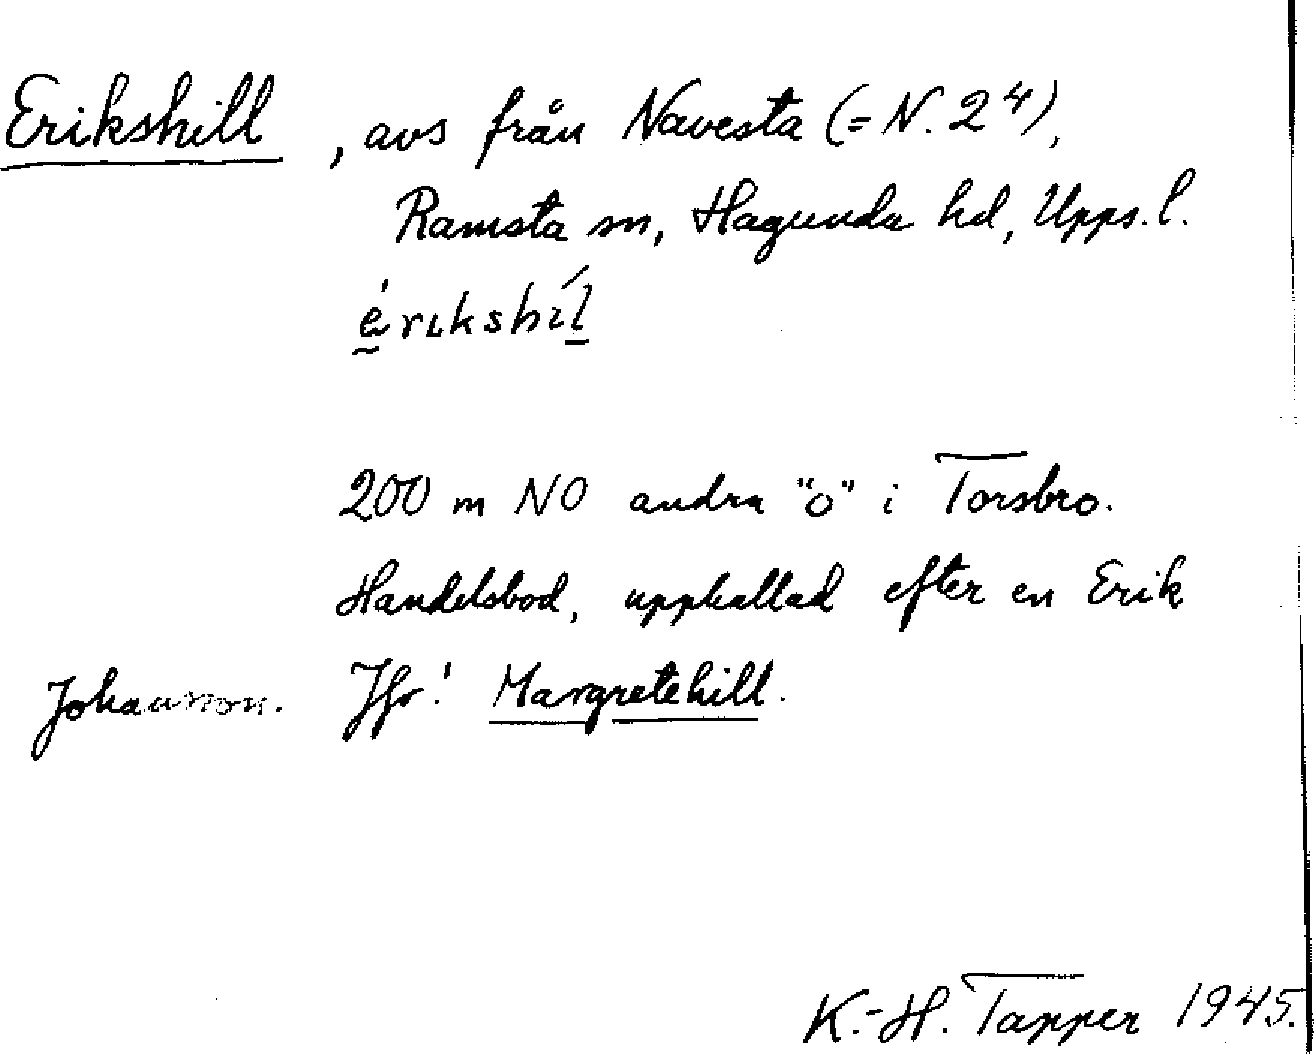 Erikshill, avs från Navesta (= N. 2⁴),
Ramsta sn, Hagunda hd, Upps. l.
érikshíl
200 m NO andra "o" i Torsbro.
Handelsbod, uppkallad efter en Erik
Johansson. Jfr! Margretehill.
K.-H. Tapper 1945.